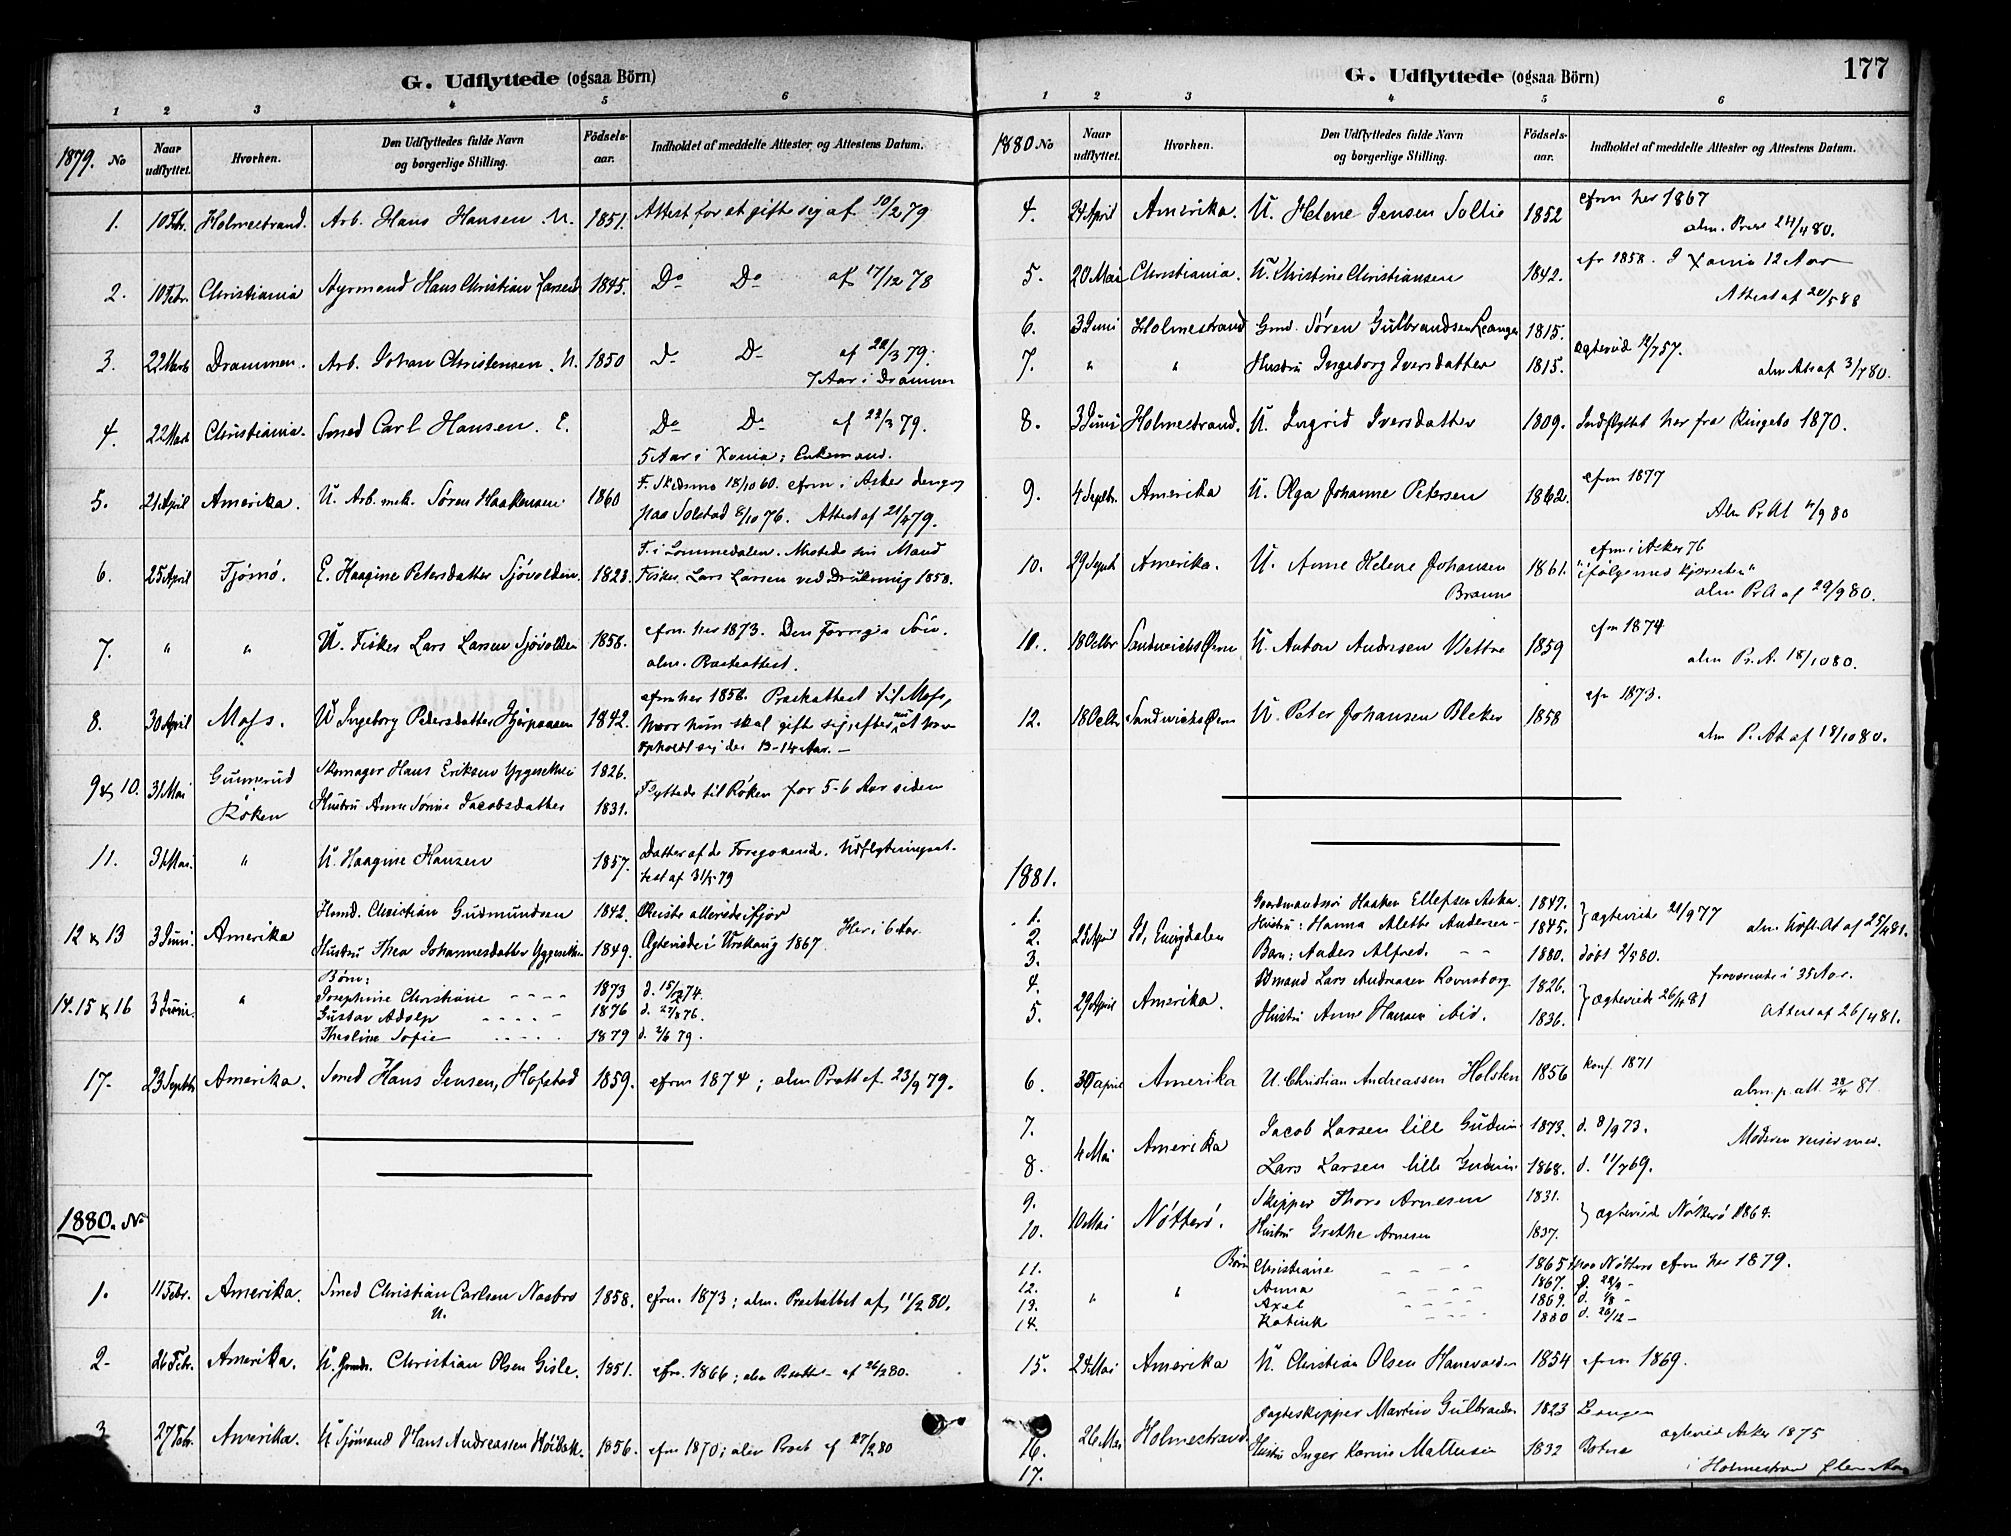 G. Udflyttede (ogsaa Börn)
1 2 3 4 5 6
1879. No Naar udflyttet. Hvorhen. Den Udflyttedes fulde Navn og borgerlige Stilling. Födsels-aar. Indholdet af meddelte Attester og Attestens Datum.
1. 10 Febr. Holmestrand. Arb. Hans Hansen U. 1851. Attest for at gifte sig af 10/2 79
2. 10 Febr. Christiania Myrmand Hans Christian Larsen 1845. Do Do af 17/12 78
3. 22 Marts Drammen. Arb. Johan Christensen. U. 1850 D- D- af 22/3 79.
7 Aar i Drammen
4. 22 Marts Christiania. Smed Carl Hansen. E. Do Do af 22/3 79.
5 Aar i Xania; Enkemand.
5. 21 April Amerika. U. Arb.msk. Søren Haakensen 1860 F. Skedsmo 18/10 60. cfrm i Asker
paa Solstad 8/10 76. Attest af 21/4 79.
6. 25 April Tjömö. E. Haagine Petersdatter Sjövolden. 1823. F. i Lommedalen. Mistede sin Mand
Fisker Lars Larsen ved Drukning 1858.
7. " " U. Fisker Lars Larsen Sjövolden 1858. cfrm. her 1873. Den Forriges Sön.
alm. Præsteattest.
8. 30 April Moss. U Ingeborg Petersdatter 1842. cfrm her 1856. Præstattest til Moss,
hvor hun skal gifte sig efter at have
opholdt sig der 13-14 Aar. —
9 & 10. 31 Mai Gunnerud Röken Skomager Hans Eriksen Yggesethei 1826.
Hustru Anne Sørine Jacobsdatter 1831. Flyttede til Röken for 5-6 Aar siden
11. 31 Mai. " U. Haagine Hansen 1857. Datter af de Foregaaende. Udflytningsat-
test af 31/5 79
12 & 13 3 Juni Amerika Hmd. Christian Gudmundsen 1842. Reiste allerede ifjor
Hustru Thea Johannesdatter Yggesethei 1849. Ægteviede i Urskoug 1867. Her i 6 Aar.
14. 15 & 16 3 Juni. " Børn:
Josephine Christiane - - - - 1873 d. 15/2 74.
Gustav Adolp - - - - 1876 d. 27/8 76.
Theoline Sofie - - - - 1879 d. 2/6 79.
17. 23 Septbr Amerika. Smed Hans Jensen, Hofstad 1859. cfrm 1874; alm Pratt af 23/9 79.
1880. No
1. 11 Febr. Amerika. Smed Christian Carlsen Næsbro U. 1858. cfrm. 1873; alm. Præstattest af 11/2 80.
2- 26 Febr. Amerika. U. Gmds. Christian Olsen Gisle. 1851. cfrm. 1866; alm Præstatt - af 26/2 80.
3 27 Febr. Amerika. U Sjömand Hans Andreassen 1856. cfrm 1870; alm Præst af 27/2 80
G. Udflyttede (ogsaa Börn) 177
1 2 3 4 5 6
1880 No Naar udflyttet. Hvorhen. Den Udflyttedes fulde Navn og borgerlige Stilling. Födsels-aar. Indholdet af meddelte Attester og Attestens Datum.
4. 24 April Amerika. U. Helene Jensen Soltie 1852 cfrm her 1867
alm. Præs 24/4 80.
5. 20 Mai Christiania. U. Christine Christiansen 1842. cfr 1858. I Xania 12 Aar
Attest af 20/5 88
6. 3 Juni Holmestrand Gmd. Søren Gulbrandsen Leangen 1815.
7. " " Hustru Ingeborg Iversdatter 1815. ægteviet 12/7 57.
alm At af 3/7 80.
8. 3 Juni Holmestrand. U. Ingrid Iversdatter 1809. Indflyttet her fra Ringebo 1870.
9. 4 Septbr. Amerika U. Olga Johanne Petersen 1862. cfrm 1877
Alm Pr At 11/9 80
10. 29 Septb Amerika. U. Anne Helene Johansen Braune 1861. cfrm i Asker 76
"ifölge med kjæresten"
alm PrA af 29/9 80.
10. 18 Octbr Sandwichs Øerne U. Anton Andresen Vettre 1859 cfrm 1874
alm Pr. A. 18/10 80.
12. 18 Octbr Sandwichs Øerne U. Peter Johansen Bleker 1858 cfr 1873.
alm P. At af 18/10 80.
1881.
1. Gaardmandssön Haaken Ellefsen Asker 1847. } ægteviede 21/9 77
2. 25 April Hustru: Hanna Alette Andersen - 1845. alm Udfl. At af 25/4 81.
3. Barn: Anders Alfred. - - 1880. döbt 2/5 80.
4. Lars Andreasen Ravnsborg 1826. } ægteviede 26/4 81 fraværende i 35 Aar.
5. 29 April Amerika. Hustru Anne Hansen ibid. 1836. Attest af 26/4 81.
6. 30 april Amerika U. Christian Andreassen Holsten 1856 Konf. 1871
alm. p. att. 28/4 81.
7. 4 Mai Amerika Jacob Larsen lille 1873. d. 8/9 73. Moderen reiser med.
8. Lars Larsen lille 1868. d. 11/7 69.
9. Skipper Thore Arnesen 1831. } ægteviede Nötterö 1864.
10. 10 Mai Nötterö. Hustru Grethe Arnesen 1837.
11. Börn Christiane - - - - 1865 paa Nötterö cfrm her 1879.
12. " " Anna - - - - 1867. d. 22/9 -
13. Axel - - - - 1869. d. 1/8 -
14. Katinka - - - - 1880 d. 26/12 -
15. 24 Mai Amerika U. Christian Olsen 1854 cfrm 1869.
16. 26 Mai Holmestrand Jagteskipper Martin Gulbrandsen 1823 Leangen
17. Hustru Inger Karine Mattesen 1832 Botne
ægteviet Asker 1875
i Holmestrand flere Aar